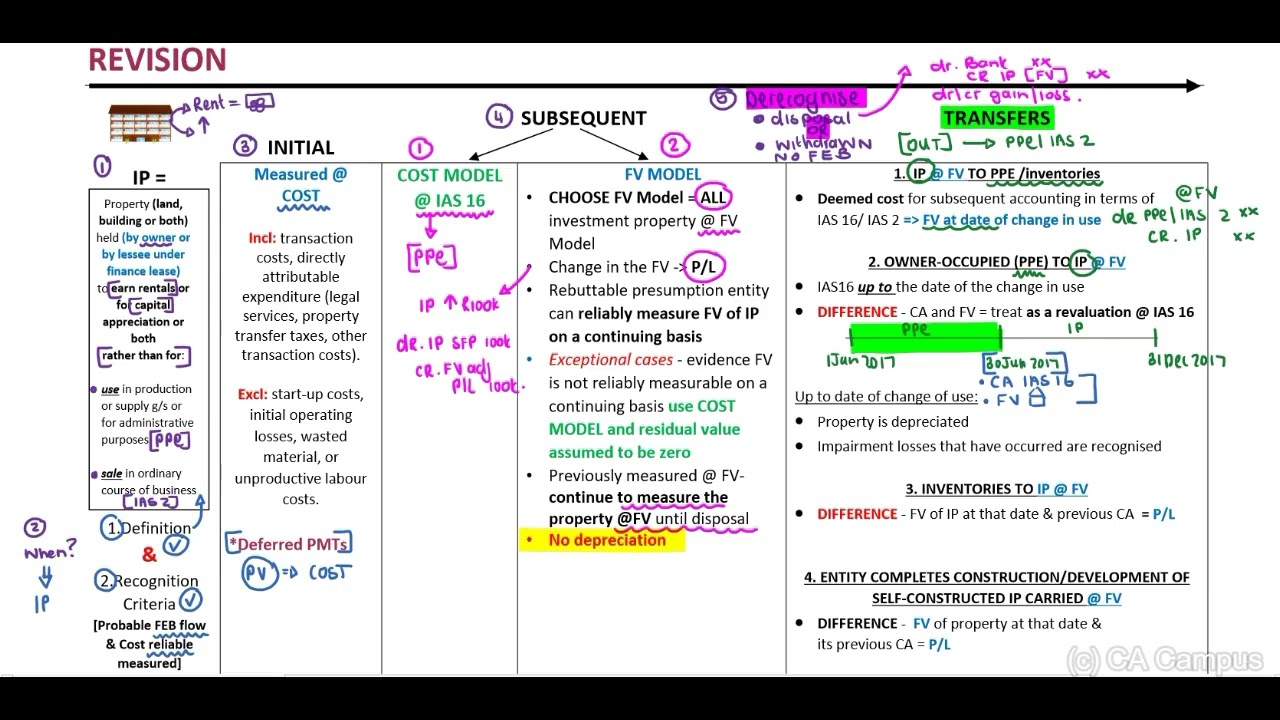 REVISION
dr. Bank xx
CR IP [FV] xx
dr/cr gain/loss.
Rent =
① IP =
Property (land,
building or both)
held (by owner or
by lessee under
finance lease)
to earn rentals or
for capital
appreciation or
both
rather than for:
• use in production
or supply g/s or
for administrative
purposes [PPE]
• sale in ordinary
course of business
[IAS 2]
② When?
IP
①.Definition
&
②.Recognition
Criteria
[Probable FEB flow
& Cost reliable
measured]
③ INITIAL
Measured @
COST
Incl: transaction
costs, directly
attributable
expenditure (legal
services, property
transfer taxes, other
transaction costs).
Excl: start-up costs,
initial operating
losses, wasted
material, or
unproductive labour
costs.
[*Deferred PMTs]
PV => COST
④ SUBSEQUENT
①
COST MODEL
@ IAS 16
[PPE]
IP ↑ R100k
dr. IP SFP 100k
CR. FV adj
P/L 100k.
②
FV MODEL
• CHOOSE FV Model = ALL
investment property @ FV
Model
• Change in the FV -> P/L
• Rebuttable presumption entity
can reliably measure FV of IP
on a continuing basis
• Exceptional cases - evidence FV
is not reliably measurable on a
continuing basis use COST
MODEL and residual value
assumed to be zero
• Previously measured @ FV-
continue to measure the
property @FV until disposal
• No depreciation
⑤ Derecognise
• disposal
OR
• withdrawn
NO FEB
TRANSFERS
[OUT] → PPE/ IAS 2
1. IP @ FV TO PPE /inventories
• Deemed cost for subsequent accounting in terms of
IAS 16/ IAS 2 => FV at date of change in use
@FV
dr PPE/IAS 2 xx
CR. IP xx
2. OWNER-OCCUPIED (PPE) TO IP @ FV
• IAS16 up to the date of the change in use
• DIFFERENCE - CA and FV = treat as a revaluation @ IAS 16
PPE IP
1Jan 2017 [30Jun 2017] 31Dec 2017
• CA IAS 16
• FV
Up to date of change of use:
• Property is depreciated
• Impairment losses that have occurred are recognised
3. INVENTORIES TO IP @ FV
• DIFFERENCE - FV of IP at that date & previous CA = P/L
4. ENTITY COMPLETES CONSTRUCTION/DEVELOPMENT OF
SELF-CONSTRUCTED IP CARRIED @ FV
• DIFFERENCE - FV of property at that date &
its previous CA = P/L
(c) CA Campus